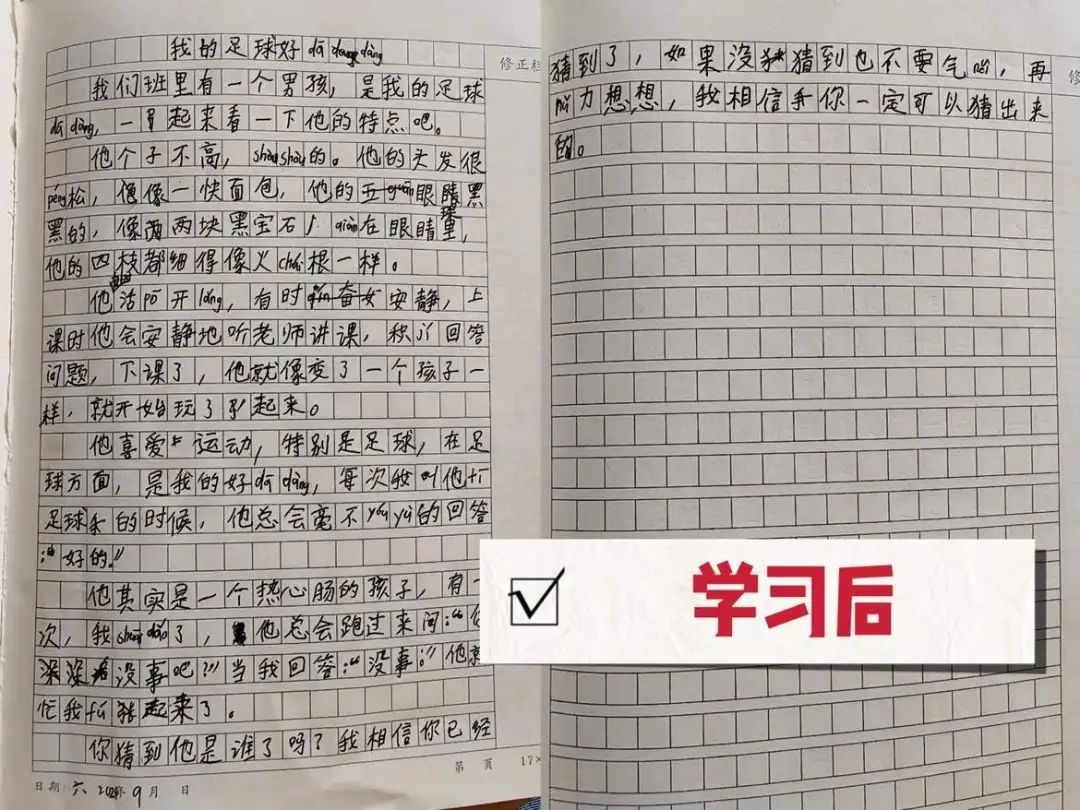 我的足球好dā dàng
修正栏
我们班里有一个男孩，是我的足球
dā dàng，一起来看一下他的特点吧。
他个子不高，shòu shòu的。他的头发很
péng松，像一快面包，他的五眼睛黑
黑的，像两块黑宝石qiàn在眼睛里，
他的四枝都细得像火chái根一样。
他活pō开lǎng，有时安静，上
课时他会安静地听老师讲课，积回答
问题，下课了，他就像变了一个孩子一
样，就开始玩了起来。
他喜爱运动，特别是足球，在足
球方面，是我的好dā dàng，每次我叫他tī
足球的时候，他总会毫不yóu yù的回答
：“好的。”
他其实是一个热心肠的孩子，有一
次，我shuāi dǎo了，他总会跑过来问：“
没事吧？”当我回答：“没事。”他就
忙我fú起来了。
你猜到他是谁了吗？我相信你已经
日期 六 2024年 9月 日
第 页
17×
猜到了，如果没猜到也不要气něi，再
nǔ力想想，我相信你一定可以猜出来
的。
修
学习后